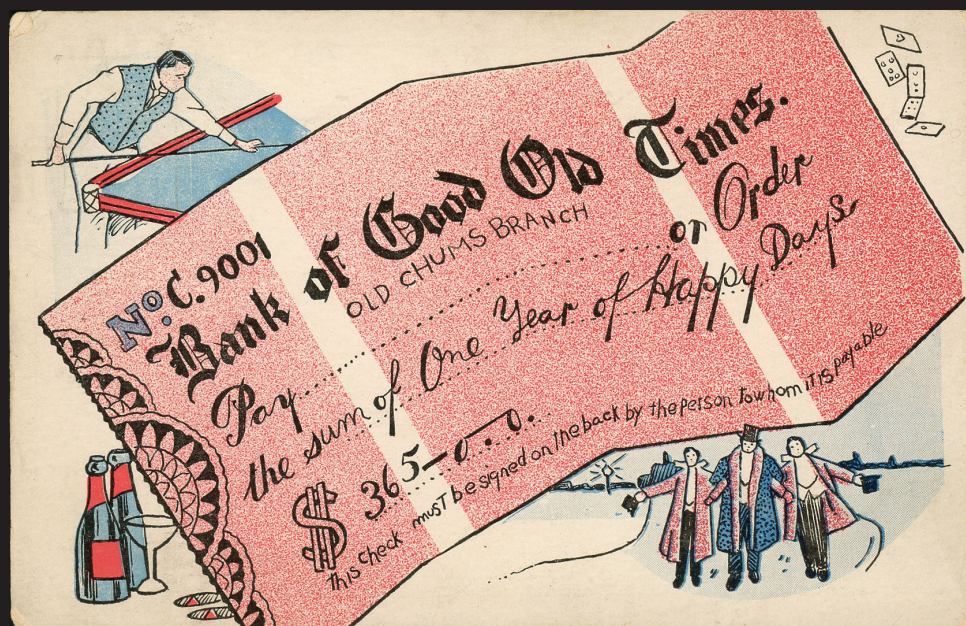 No. C. 9001
Bank of Good Old Times.
OLD CHUMS BRANCH
Pay or Order
the sum of One Year of Happy Days
$ 365-0.0.
This Check must be signed on the back by the person to whom it is payable